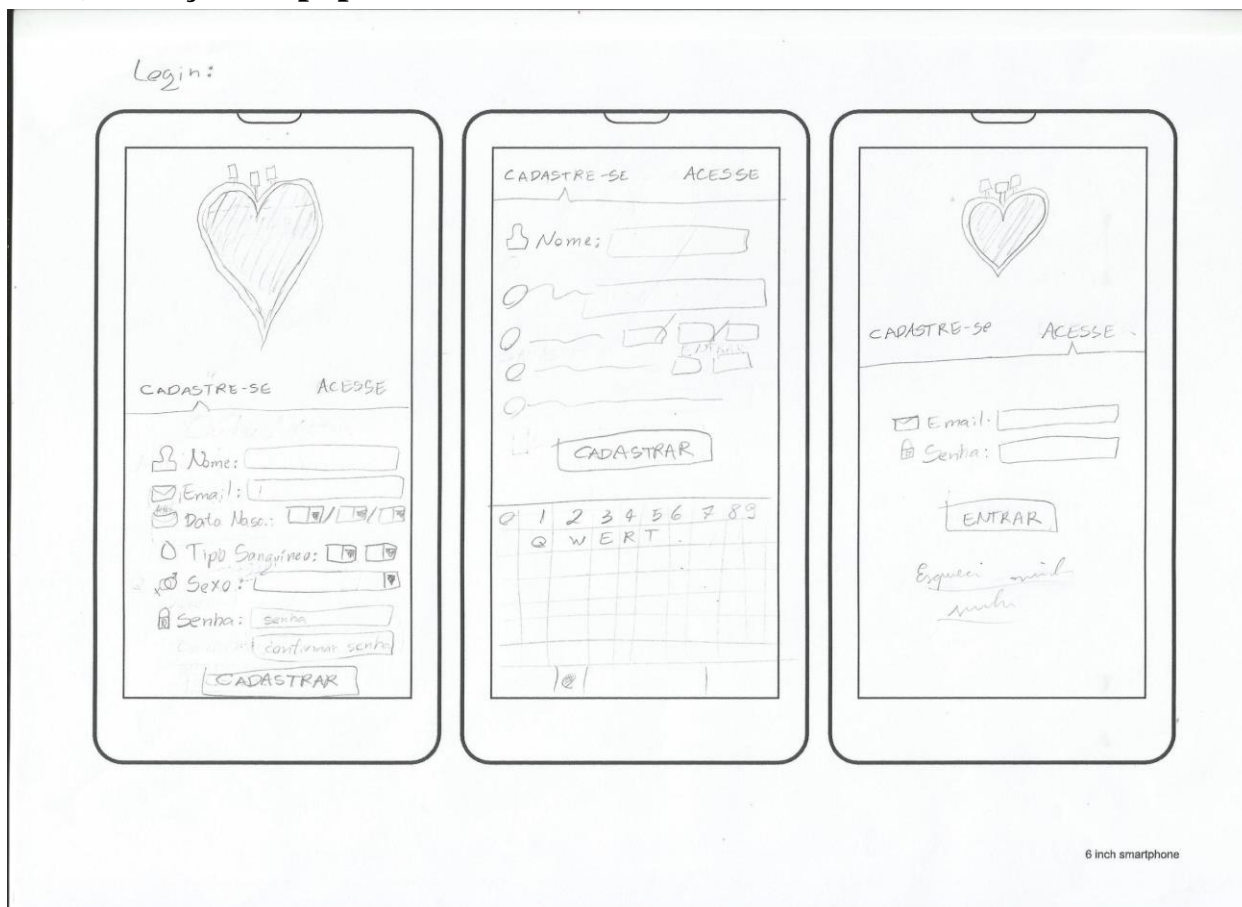 Login:
CADASTRE-SE ACESSE
Nome:
Email:
Data Nasc.: / /
Tipo Sanguíneo:
Sexo:
Senha: senha
confirmar senha
CADASTRAR
CADASTRE-SE ACESSE
Nome:
CADASTRAR
0 1 2 3 4 5 6 7 8 9
Q W E R T
@
CADASTRE-SE ACESSE
Email:
Senha:
ENTRAR
Esqueci
6 inch smartphone